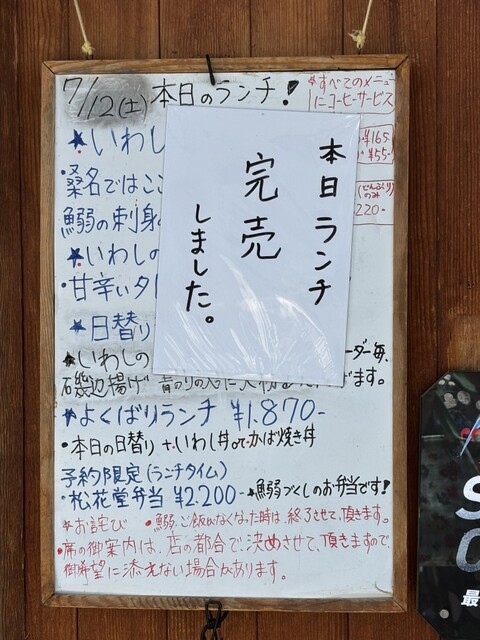 7/12(土)本日のランチ!
*すべてのメニュー
にコーヒーサービス
★いわし
¥165
¥55-
・桑名ではここ
鰯の刺身
のみ
220-
★いわしの
・甘辛いタレ
★日替り
本日ランチ
完売
しました。
★いわしの
ーダー毎、
磯辺揚げ
ます。
★よくばりランチ ¥1.870-
・本日の日替り+いわし丼orかば焼き丼
予約限定(ランチタイム)
・松花堂弁当 ¥2.200- ★鰯づくしのお弁当です!
☆お詫び ・鰯、ご飯がなくなった時は、終了させて、頂きます。
・席の御案内は、店の都合で、決めさせて、頂きますので、
御希望に添えない場合があります。
最